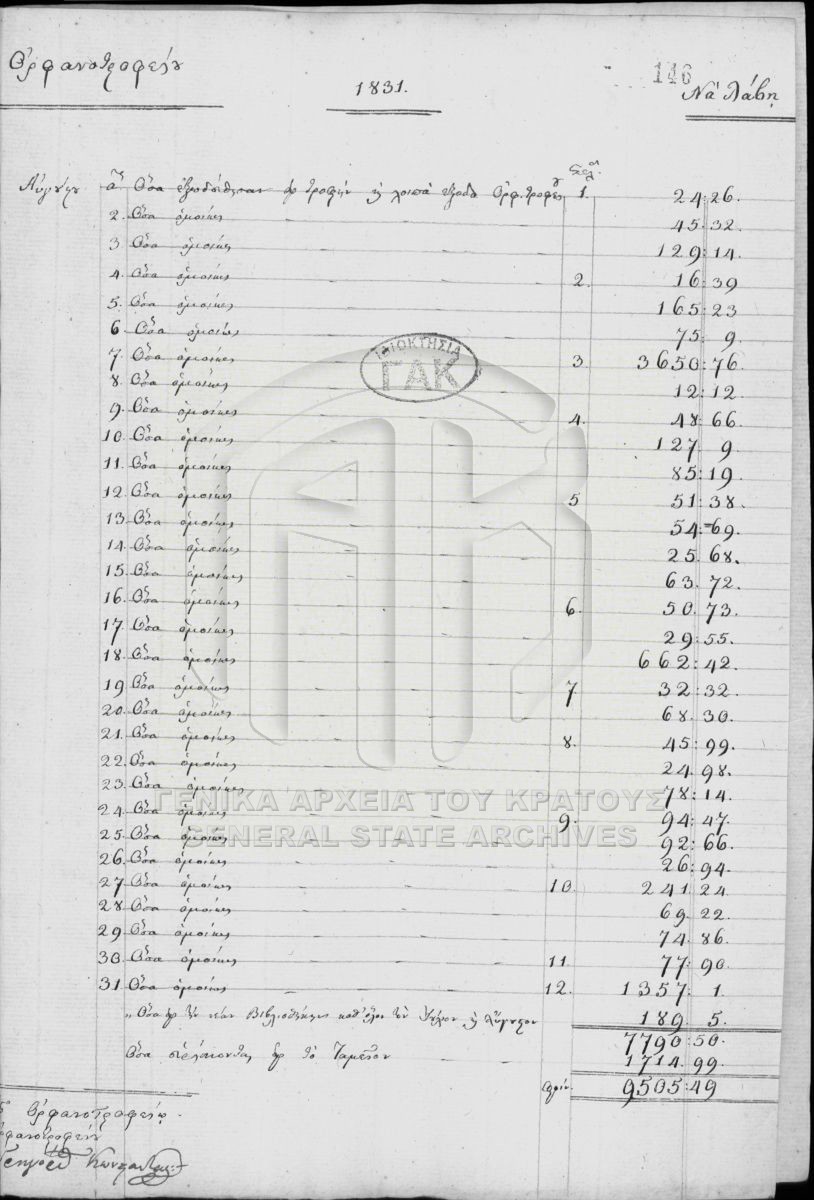 Ὀρφανοτροφείου
1831.
146
Νὰ Λάβῃ
Αὐγούστου
Σελ.
α Ὅσα ἐξωδεύθησαν τροφὴν λοιπὰ ἔξοδα Ὀρφ.τροφείου 1. 24:26.
2. Ὅσα ὁμοίως 45:32.
3. Ὅσα ὁμοίως 129:14.
4. Ὅσα ὁμοίως 2. 16:39
5. Ὅσα ὁμοίως 165:23
6. Ὅσα ὁμοίως 75:9.
7. Ὅσα ὁμοίως 3. 3650:76.
8. Ὅσα ὁμοίως 12:12.
9. Ὅσα ὁμοίως 4. 48:66.
10. Ὅσα ὁμοίως 127.9.
11. Ὅσα ὁμοίως 85:19.
12. Ὅσα ὁμοίως 5 51:38.
13. Ὅσα ὁμοίως 54:69.
14. Ὅσα ὁμοίως 25.68.
15. Ὅσα ὁμοίως 63.72.
16. Ὅσα ὁμοίως 6. 50.73.
17. Ὅσα ὁμοίως 29:55.
18. Ὅσα ὁμοίως 662:42.
19 Ὅσα ὁμοίως 7. 32:32.
20. Ὅσα ὁμοίως 68.30.
21. Ὅσα ὁμοίως 8. 45:99.
22. Ὅσα ὁμοίως 24.98.
23. Ὅσα ὁμοίως 78:14.
24. Ὅσα ὁμοίως 9. 94:47.
25. Ὅσα ὁμοίως 92:66.
26. Ὅσα ὁμοίως 26:94.
27 Ὅσα ὁμοίως 10. 241.24
28 Ὅσα ὁμοίως 69.22.
29. Ὅσα ὁμοίως 74.86.
30. Ὅσα ὁμοίως 11. 77:90.
31. Ὅσα ὁμοίως 12. 1357:1.
„ Ὅσα Βιβλιοθήκης καθ' ὅλον τὸν Ἰούλιον Αὔγουστον 189.5.
7790:50.
Ὅσα τὸ Ταμεῖον 1714.99.
9505:49
Ὀρφανοτροφείῳ.
ΙΔΙΟΚΤΗΣΙΑ
ΓΑΚ
ΓΕΝΙΚΑ ΑΡΧΕΙΑ ΤΟΥ ΚΡΑΤΟΥΣ
GENERAL STATE ARCHIVES